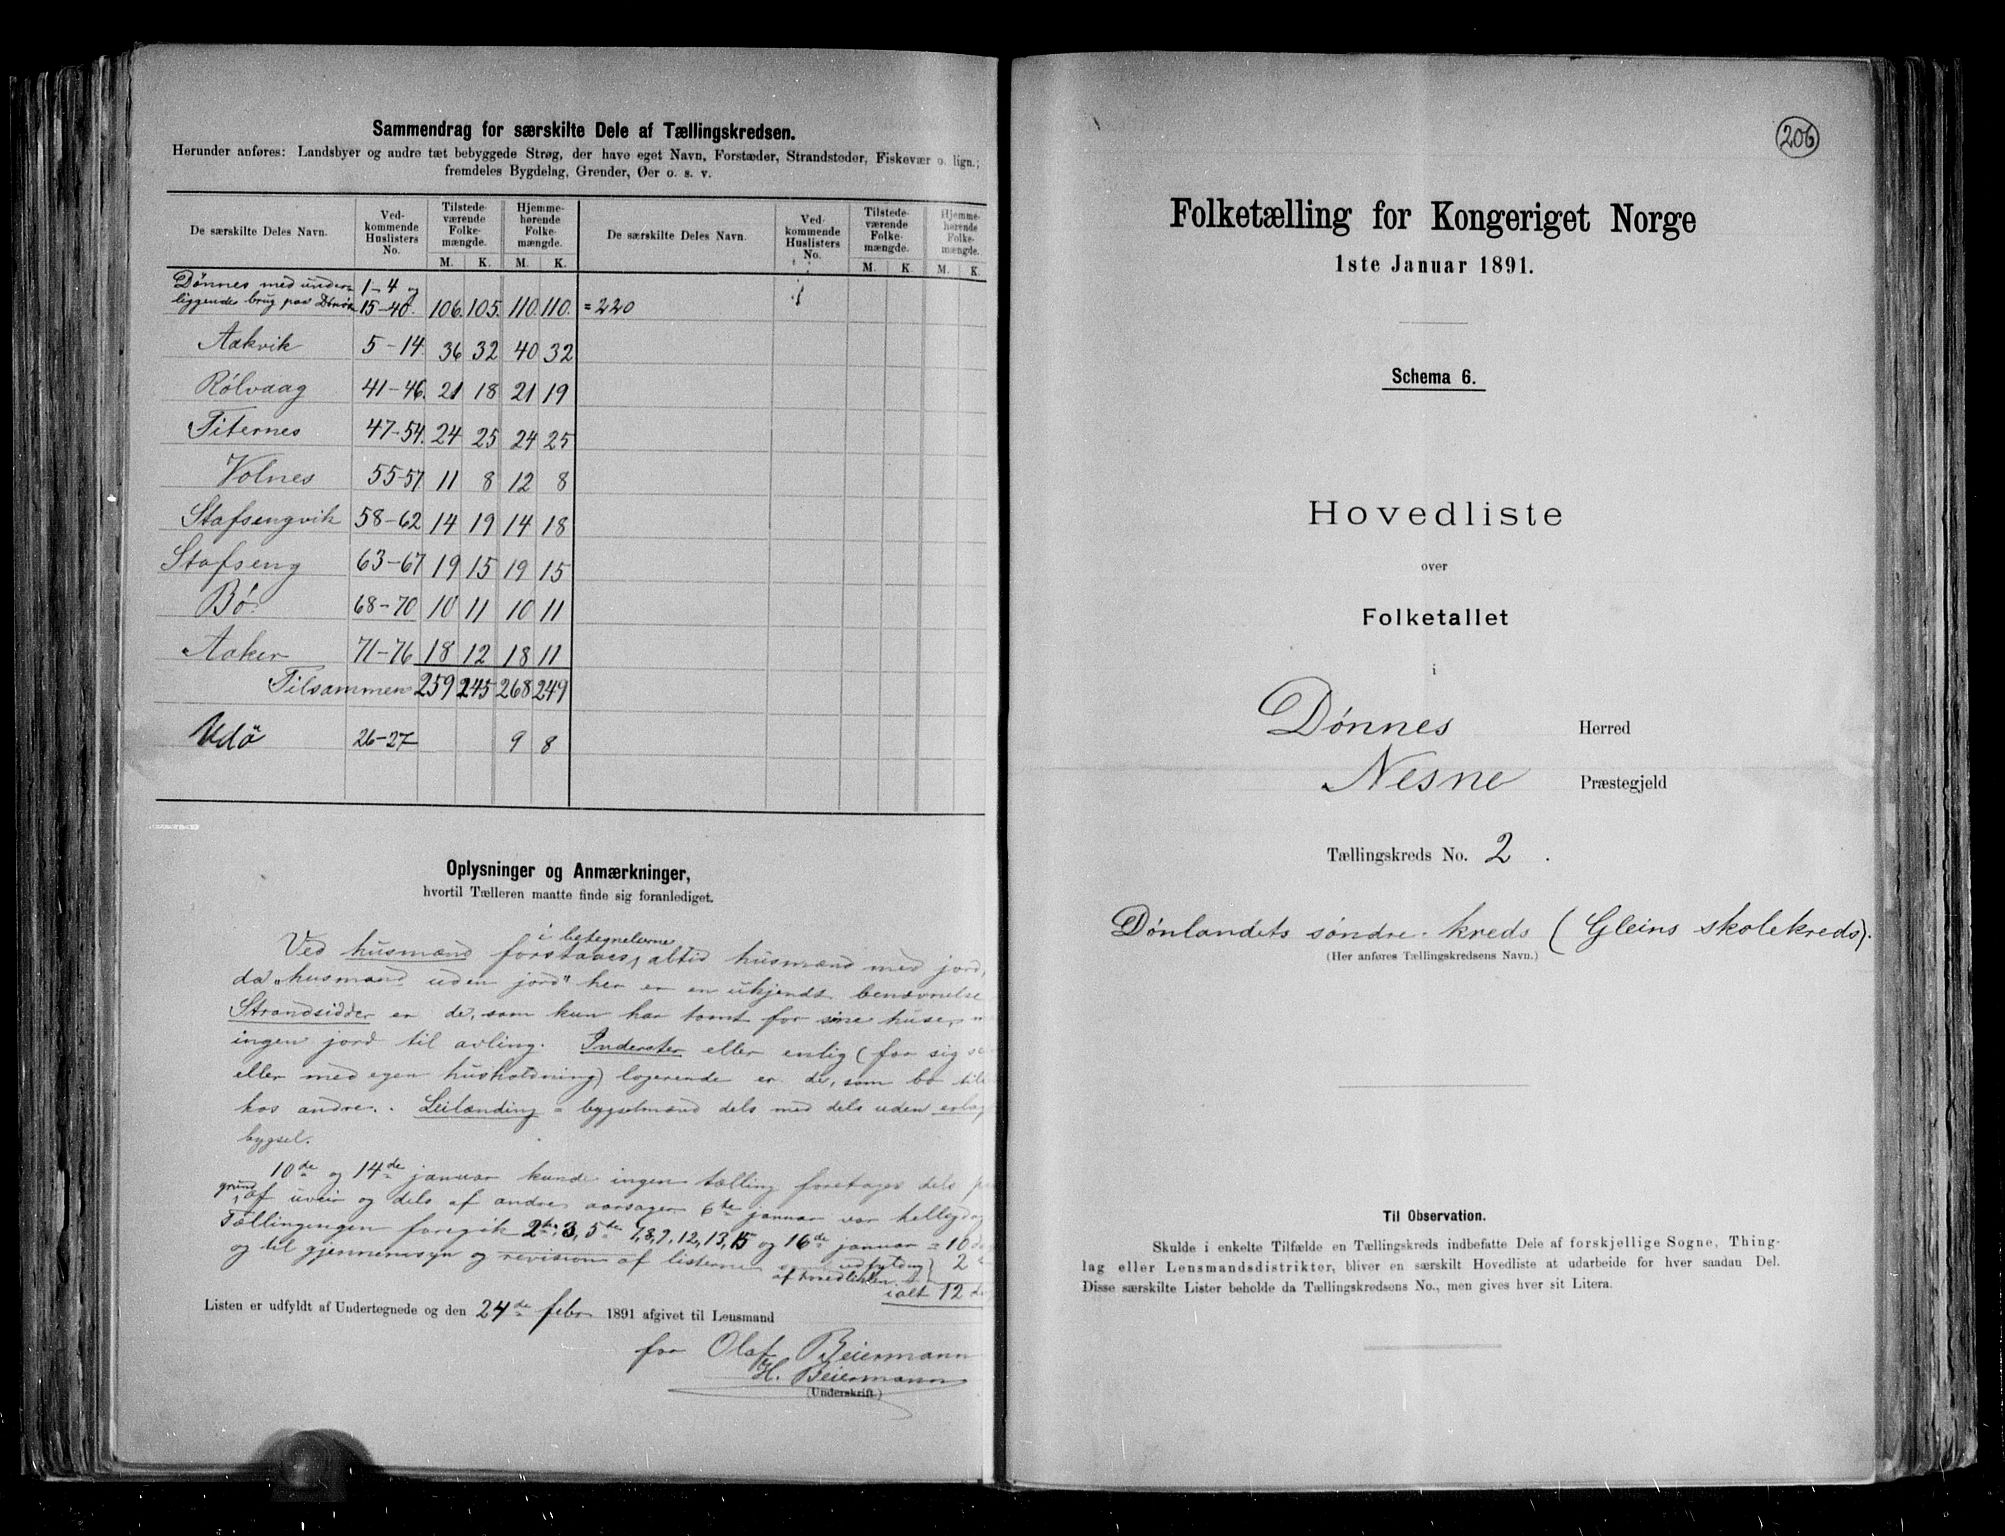 Sammendrag for særskilte Dele af Tællingskredsen.
Herunder anføres: Landsbyer og andre tæt bebyggede Strøg, der have eget Navn, Forstæder, Strandsteder, Fiskevær o. lign.;
fremdeles Bygdelag, Grender, Øer o. s. v.
De særskilte Deles Navn. Ved-kommende Huslisters No. Tilstede-værende Folke-mængde. Hjemme-hørende Folke-mængde. De særskilte Deles Navn. Ved-kommende Huslisters No. Tilstede-værende Folke-mængde. Hjemme-hørende Folke-mængde.
M. K. M. K. M. K. M. K.
Dønnes med under- 1-4 og
liggende brug paa Dönö 15-40. 106. 105. 110. 110. = 220
Aakvik 5-14. 36 32 40 32
Rölvaag 41-46. 21 18 21 19
Titernes 47-54. 24 25 24 25
Volnes 55-57. 11 8 12 8
Stafsengvik 58-62 14 19 14 18
Stafseng 63-67 19 15 19 15
Bö 68-70 10 11 10 11
Aaker 71-76 18 12 18 11
Tilsammen 259 245 268 249
Udö 26-27 9 8
Oplysninger og Anmærkninger,
hvortil Tælleren maatte finde sig foranlediget.
i betegnelserne
Ved husmænd forstaaes altid husmænd med jord,
da "husmand uden jord" her er en ukjendt benævnelse
Strandsidder er de, som kun har tomt for sine huse,
ingen jord til avling. Inderster eller enlig (for sig
eller med egen husholdning) logerende er de, som bo til
hos andre. Leilænding = bygselmand dels med dels uden
bygsel.
10de og 14de januar kunde ingen tælling foretages dels
grund af uveir og dels af andre aarsager 6te januar var helligdag
Tællingen foregik 2den, 3, 5te, 7, 8, 9, 12, 13, 15 og 16de januar = 10
og til gjennemsyn og revision af listerne udfylding 2
af hovedlisten
ialt 12
Listen er udfyldt af Undertegnede og den 24de febr 1891 afgivet til Lensmand
for Olaf Beiermann
H. Beiermann
(Underskrift.)
206
Folketælling for Kongeriget Norge
1ste Januar 1891.
Schema 6.
Hovedliste
over
Folketallet
i
Dønnes Herred
Nesne Præstegjeld
Tællingskreds No. 2.
Dønlandets søndre kreds (Gleins skolekreds).
(Her anføres Tællingskredsens Navn.)
Til Observation.
Skulde i enkelte Tilfælde en Tællingskreds indbefatte Dele af forskjellige Sogne, Thing-
lag eller Lensmandsdistrikter, bliver en særskilt Hovedliste at udarbeide for hver saadan Del.
Disse særskilte Lister beholde da Tællingskredsens No., men gives hver sit Litera.